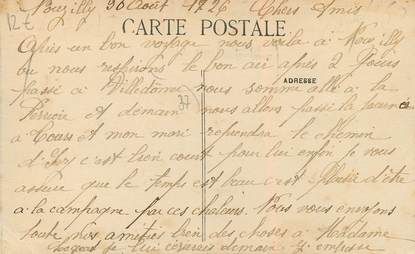 Nouzilly 30 Août 1926 Chers Amis
12€
CARTE POSTALE
Après un bon voyage nous voila à Nouzilly
ou nous respirons le bon air après 2 jours
ADRESSE
passé à Villedomer nous somme allé à la
37
et demain nous allons passé la journée
a Tours et mon mari reprendra le chemin
d'Ivry c'est bien court pour lui enfin je vous
assure que le temps est beau c'est plaisir d'être
a la campagne par ces chaleurs. Nous vous envoyons
toute nos amitiés bien des choses a Madame
je lui écrirais demain J'embrasse